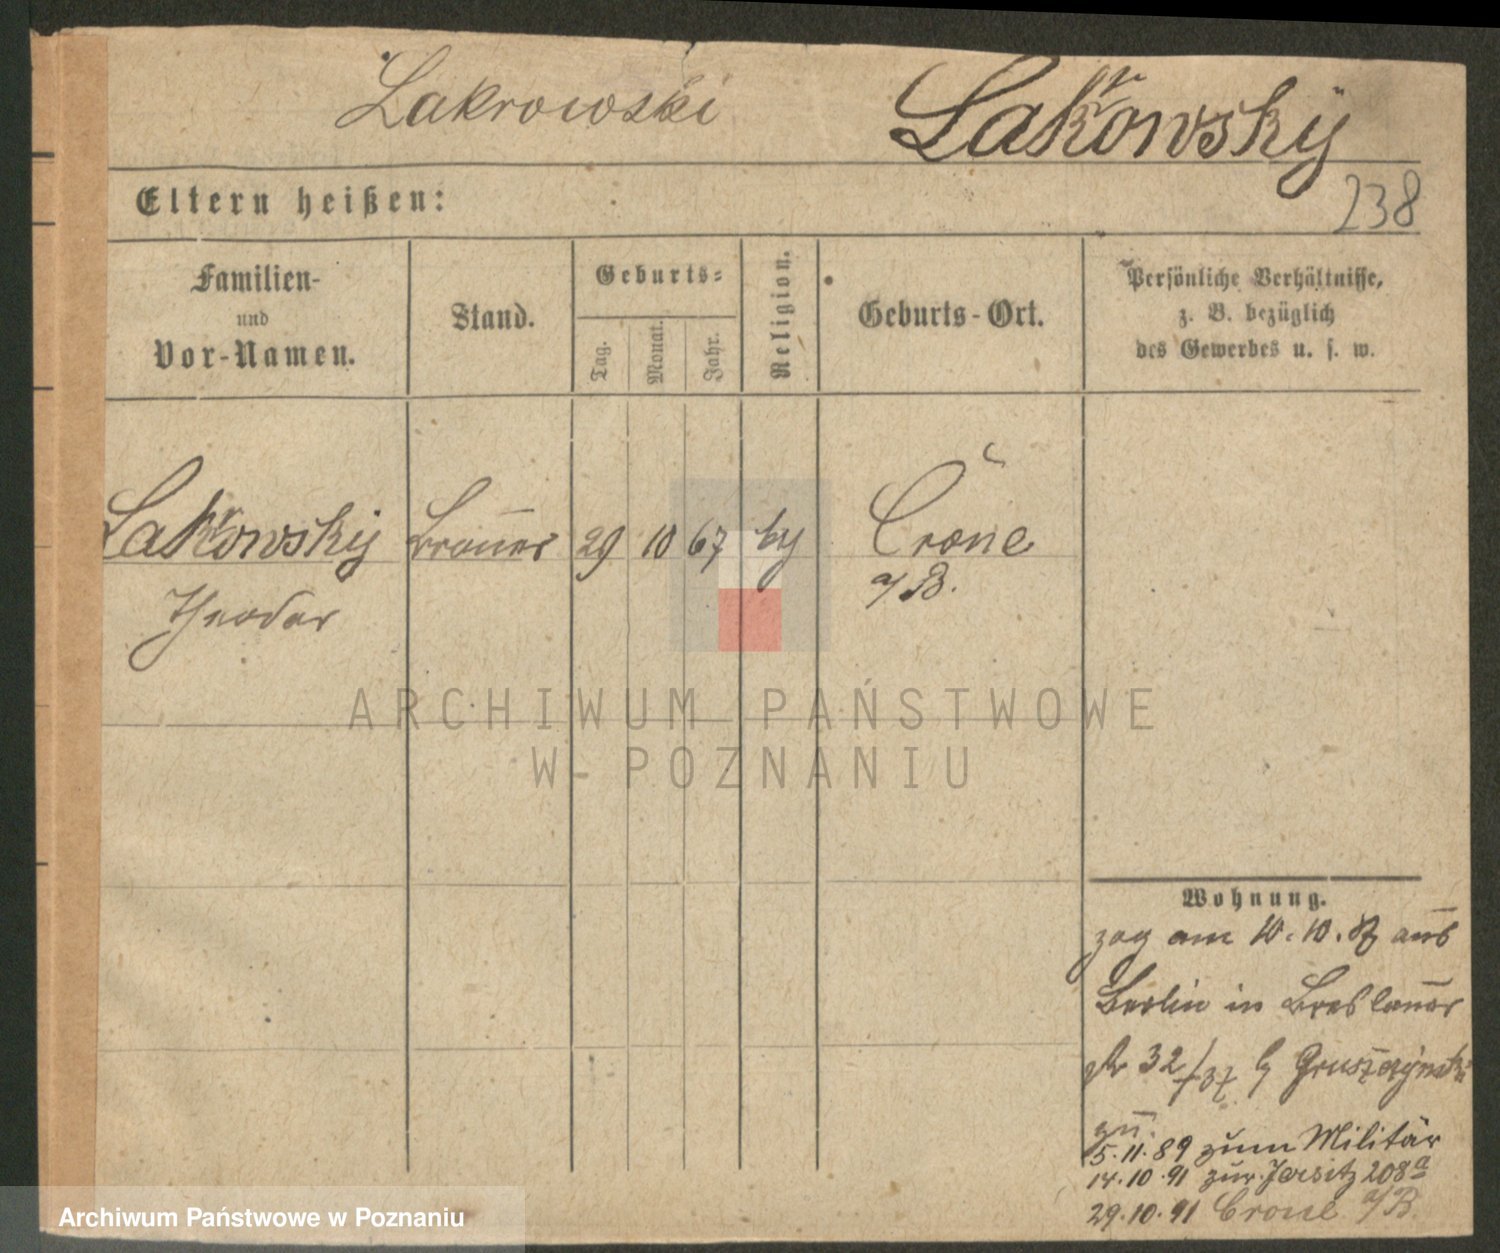 Lakrowski Lakrowsky
238
Eltern heißen:
Familien-
und
Vor-Namen.
Stand.
Geburts-
Tag.
Monat.
Jahr.
Religion.
Geburts-Ort.
Persönliche Verhältnisse,
z. B. bezüglich
des Gewerbes u. s. w.
Lakrowsky Brauer 29 10 67 Crone
a/B.
Theodor
ARCHIWUM PAŃSTWOWE
W POZNANIU
Wohnung.
zog am 10.10.87 aus
Berlin in Breslauer
Str 32/37 b Gruszczynski
zu.
5.11.89 zum Militär
14.10.91 zur. Jersitz 208a
29.10.91 Crone a/B.
Archiwum Państwowe w Poznaniu